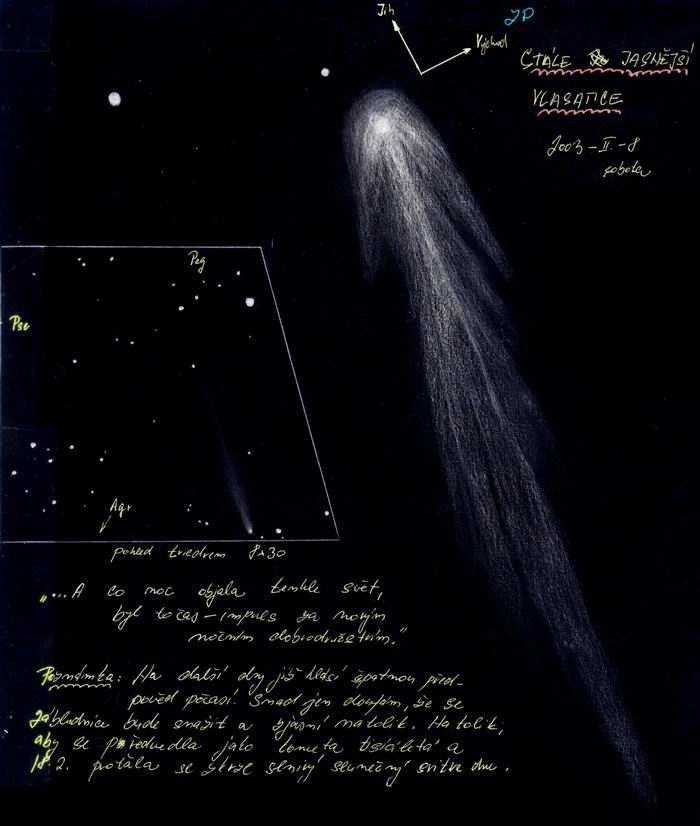 Jih
JD
Východ
STÁLE JASNĚJŠÍ
VLASATICE
2003-II.-8
sobota
Peg
Psc
Aqr
pohled triedrem 8x30
„...A co noc objala tenhle svět,
byl to čas-impuls za novým
nočním dobrodružstvím.“
Poznámka: Na další dny již hlásí špatnou před-
pověd počasí! Snad jen doufám, že se
zábludnice bude snažit a zjasní natolik. Natolik,
aby se předvedla jako kometa tisíciletá a
18.2. protála se skrze slunečný svit dne.